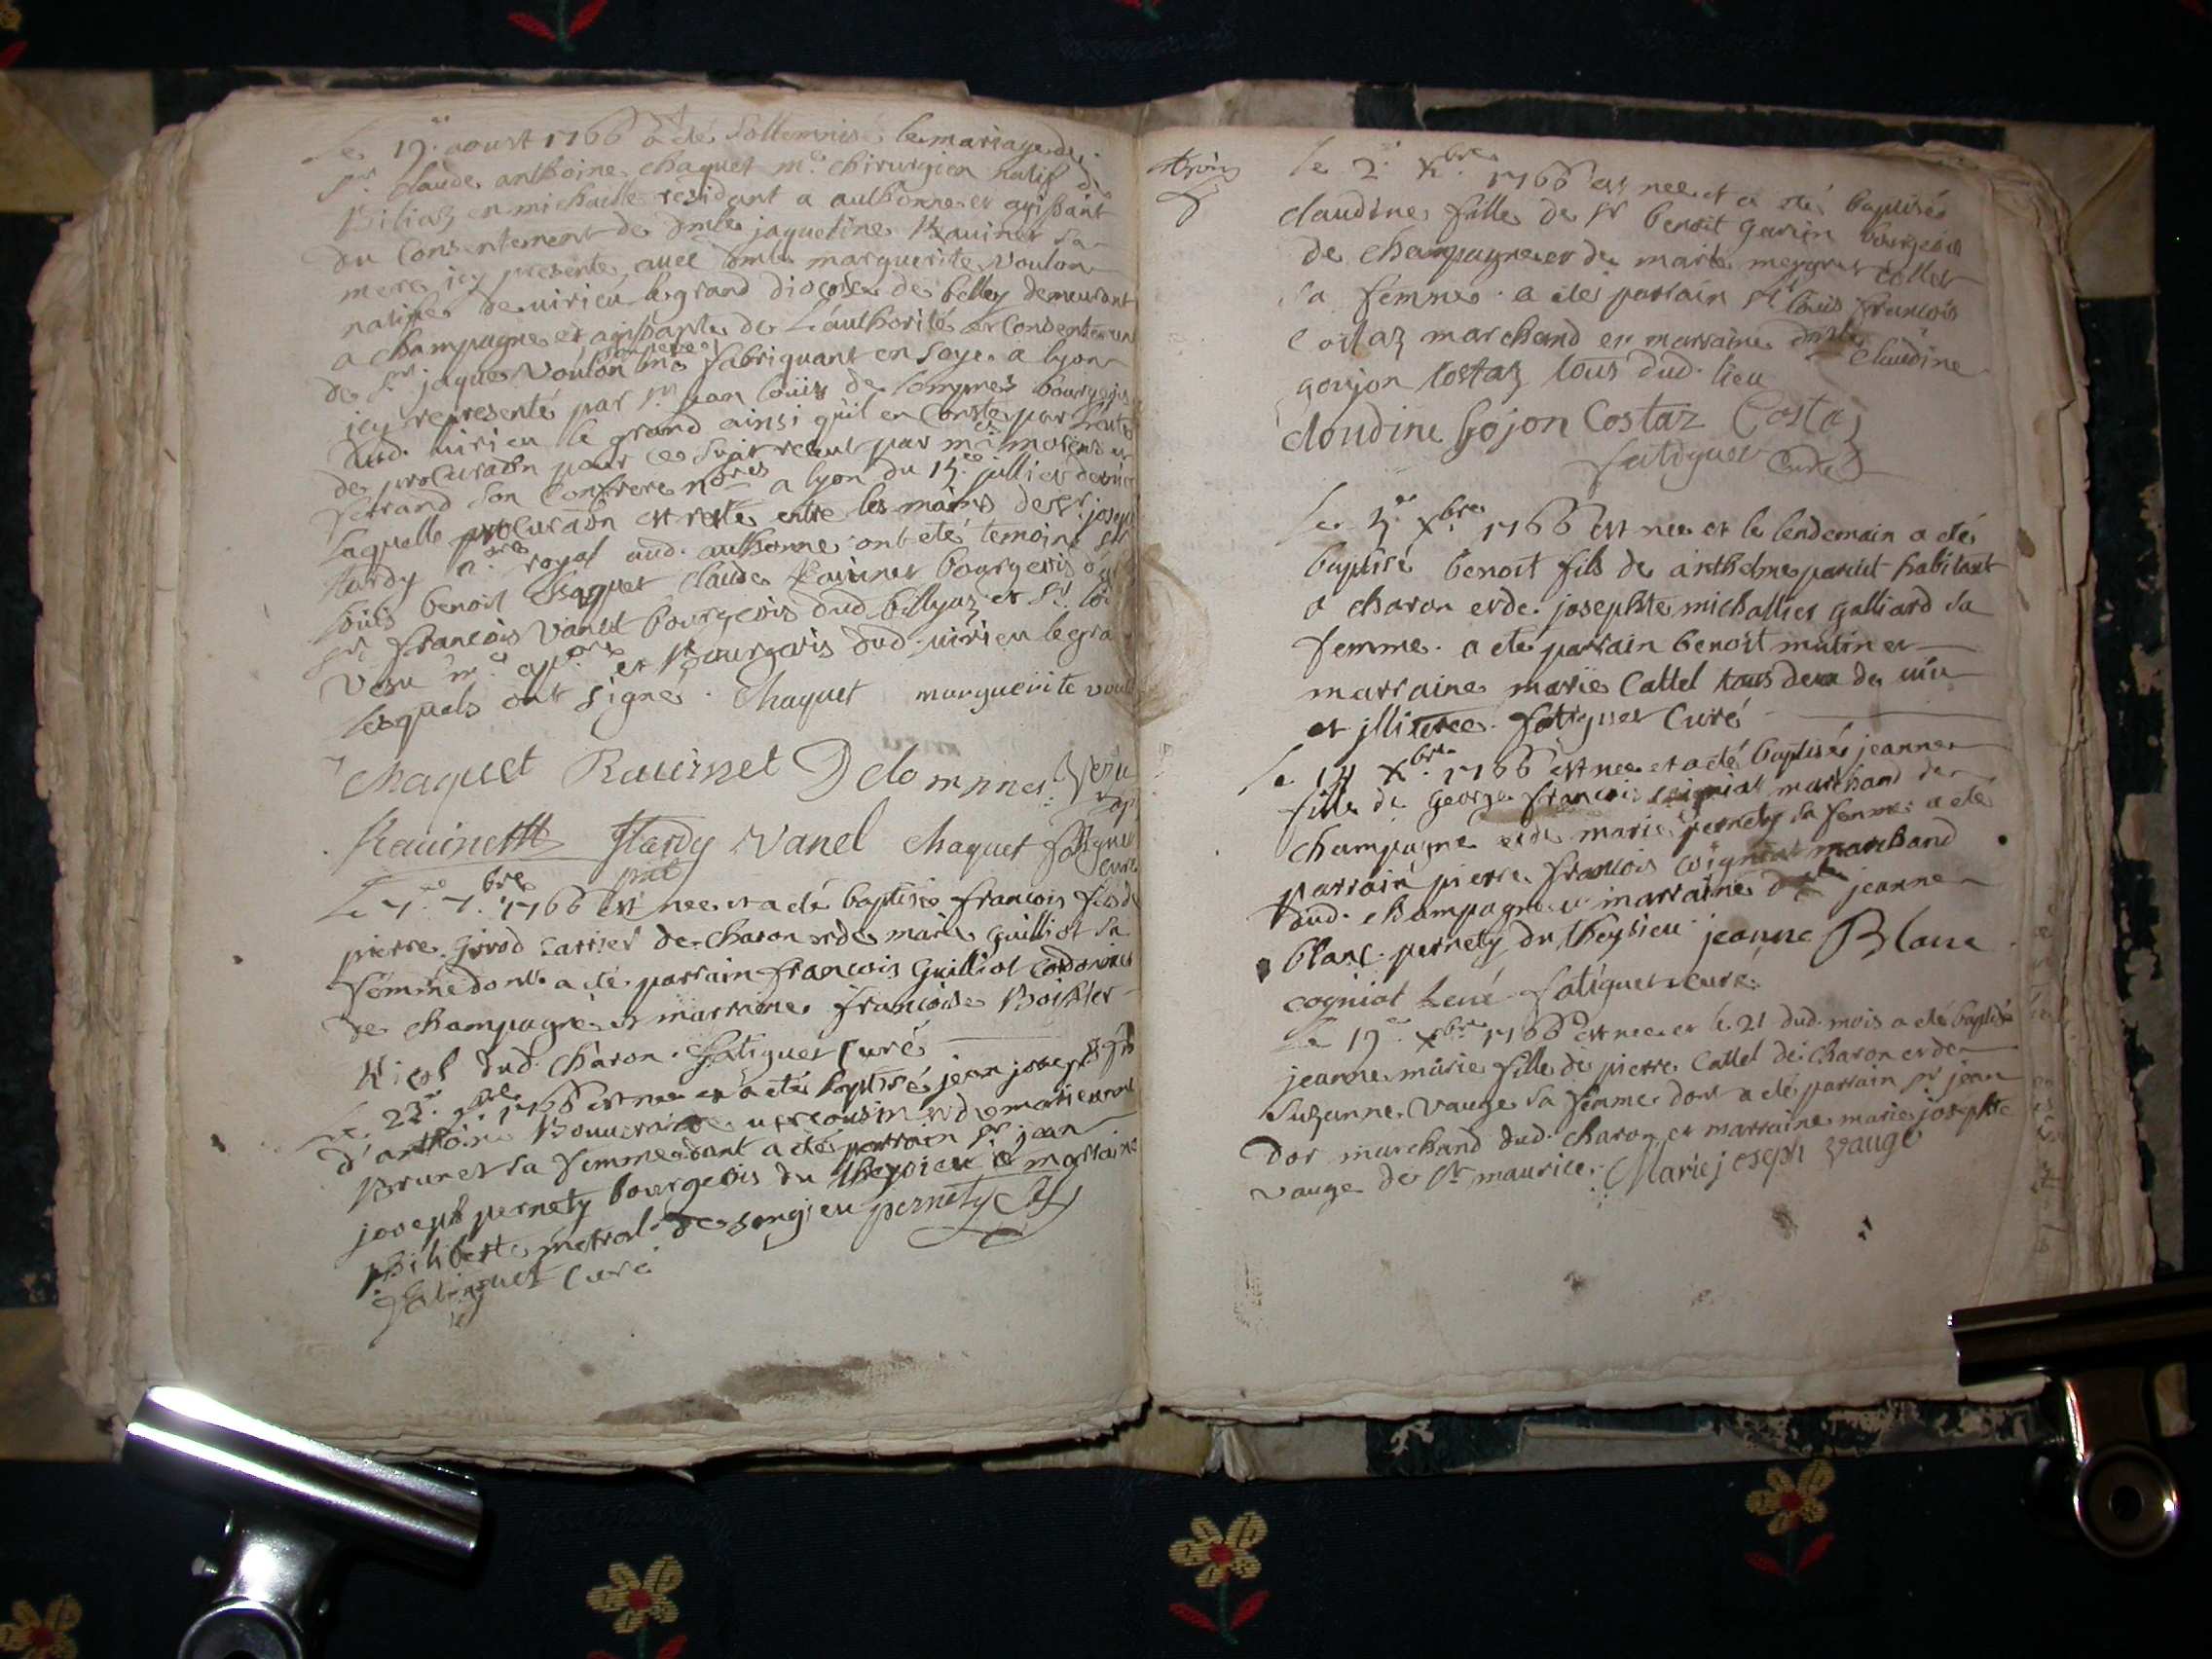 Le 19e aoust 1766 a eté sollemnisé le mariage de
sr claude anthoine chaquet me chirurgien natif de
Biliaz en michaille residant a authonne et agissant
du Consentement de dmlle jaqueline Ravinet sa
mere icy presente, avec dmlle marguerite voulon
natife de virieu le grand diocese de belley demeurant
a champagne et agissante de L'authorité et Consentement
de sr jaque voulon son pere me fabriquant en soye a lyon
icy representé par sr jean louis de lommes bourgeois
dud. virieu le grand ainsi qu'il en Conste par l'acte
de procuraon pour ce sujet receut par me
son Confrere nores a lyon du 15e julliet dernier
laquelle procuraon est restée entre les mains de sr joseph
tardy nore royal aud. authonne ont eté temoins sr
louis benoit chaquet claude Ravinet bourgeois
sr francois vanel bourgeois dud billyaz et sr
vezu me et Bourgeois dud. virieu le gra
lesquels ont signé. Chaquet marguerite voul
chaquet Ravinet Delommes Vezu
Ravinett Tardy Vanel chaquet fatiguet
curé
Le 7e 7bre 1766 est nee et a eté baptisé francois fils de
pierre girod carrier de charon et de marie guilliot sa
femme dont a eté parrain francois guilliot cordonnier
de champagne et marraine francoise
dud. charon. fatiguet curé
Le 23e 1766 est nee et a eté baptisé jean joseph fils
d'anthoine Bouvera et de marieanne
Brunet sa femme dont a eté parrain sr jean
joseph pernety bourgeois du theysieu et marraine
philiberte metral de songieu pernety
fatiguet curé
Le 2e xbre 1766 est nee et a eté baptisée
claudine fille de sr benoit gavin bourgeois
de champagne et de marie meygret collet
sa femme. a eté parrain sr louis francois
costaz marchand et marraine dmlle claudine
goujon costaz tous dud. lieu
cloudine Gojon Costaz Costaz
fatiguet curé
Le 3e xbre 1766 est nee et le lendemain a eté
baptisé benoit fils de anthelme parent habitant
a charon et de josephte michallier galliard sa
femme. a eté parrain benoit mutin et
marraine marie Cattel tous deux de
et illiteree. fatiguet Curé
Le 14 xbre 1766 est nee et a eté baptisée jeanne
fille de george francois cogniat marchand de
champagne et de marie pernety sa femme a eté
parrain pierre francois cogniat marchand
dud. champagne et marraine dmlle jeanne
blanc pernety du theysieu jeanne Blanc
cogniat René fatiguet curé
Le 19e xbre 1766 est nee et le 21 dud. mois a eté baptisée
jeanne marie fille de pierre Cattel de charon et de
Suzanne Vauge sa femme dont a eté parrain sr jean
dor marchand dud. charon et marraine marie josephte
vauge de st maurice. Marie joseph Vauge